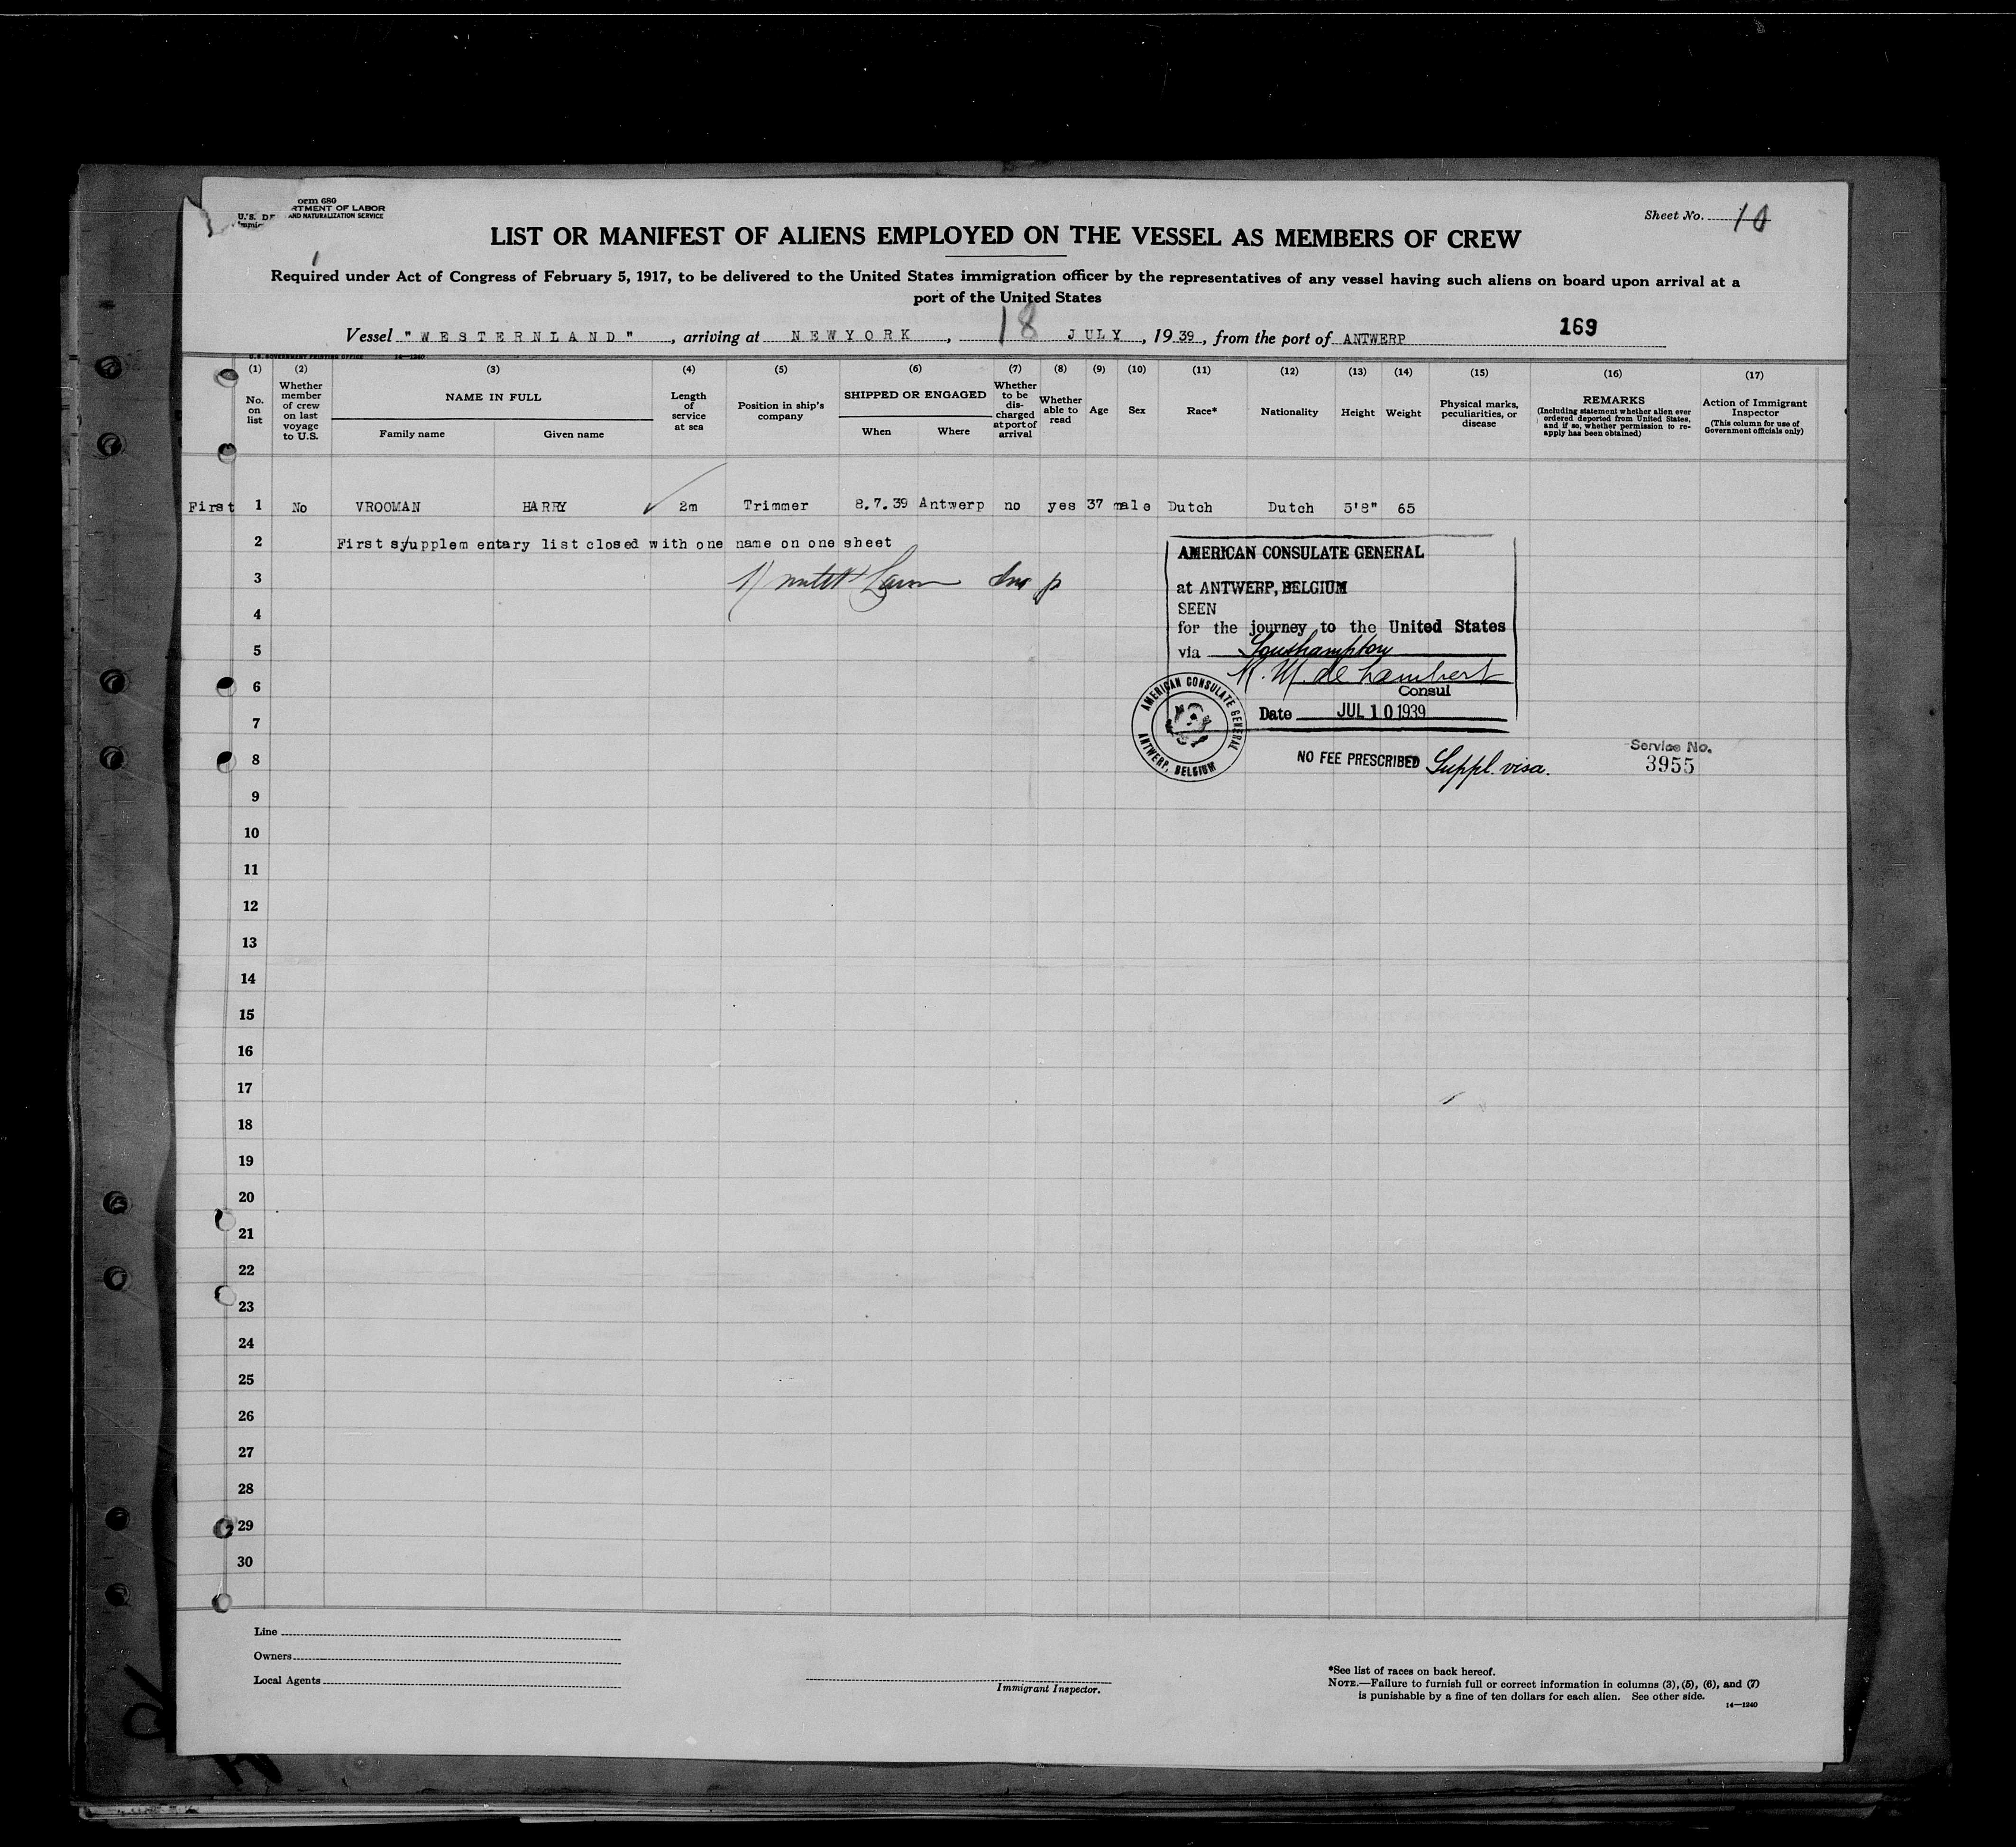 orm 680
U.S. DE RTMENT OF LABOR
Immig AND NATURALIZATION SERVICE
Sheet No. 10
LIST OR MANIFEST OF ALIENS EMPLOYED ON THE VESSEL AS MEMBERS OF CREW
Required under Act of Congress of February 5, 1917, to be delivered to the United States immigration officer by the representatives of any vessel having such aliens on board upon arrival at a
port of the United States
Vessel "WESTERNLAND", arriving at NEWYORK, 18 JULY, 1939, from the port of ANTWERP 169
U.S. GOVERNMENT PRINTING OFFICE 14—1240
(1) (2) (3) (4) (5) (6) (7) (8) (9) (10) (11) (12) (13) (14) (15) (16) (17)
No. on list
Whether member of crew on last voyage to U.S.
NAME IN FULL
Family name Given name
Length of service at sea
Position in ship's company
SHIPPED OR ENGAGED
When Where
Whether to be discharged at port of arrival
Whether able to read
Age
Sex
Race*
Nationality
Height
Weight
Physical marks, peculiarities, or disease
REMARKS
(Including statement whether alien ever ordered deported from United States, and if so, whether permission to re-apply has been obtained)
Action of Immigrant Inspector
(This column for use of Government officials only)
First 1 No VROOMAN HARRY ✓ 2m Trimmer 8.7.39 Antwerp no yes 37 male Dutch Dutch 5'8" 65
2 First s/upplem entary list closed with one name on one sheet
AMERICAN CONSULATE GENERAL
at ANTWERP, BELGIUM
SEEN
for the journey to the United States
via Southampton
Consul
Date JUL 10 1939
AMERICAN CONSULATE GENERAL
ANTWERP, BELGIUM
NO FEE PRESCRIBED Suppl. visa.
Service No.
3955
3
4
5
6
7
8
9
10
11
12
13
14
15
16
17
18
19
20
21
22
23
24
25
26
27
28
29
30
Line
Owners
Local Agents
Immigrant Inspector.
*See list of races on back hereof.
NOTE.—Failure to furnish full or correct information in columns (3), (5), (6), and (7)
is punishable by a fine of ten dollars for each alien. See other side.
14—1240